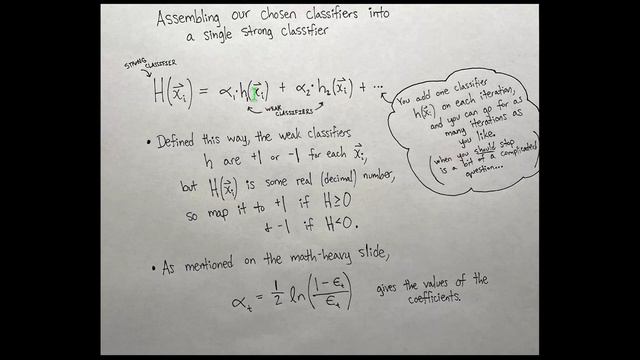 Assembling our chosen classifiers into
a single strong classifier
STRONG
CLASSIFIER
H(x⃗ᵢ) = α₁·h₁(x⃗ᵢ) + α₂·h₂(x⃗ᵢ) + ...
WEAK
CLASSIFIERS
You add one classifier
h(x⃗ᵢ) on each iteration,
and you can go for as
many iterations as
you like.
(when you should stop
is a bit of a complicated
question...)
• Defined this way, the weak classifiers
h are +1 or -1 for each x⃗ᵢ,
but H(x⃗ᵢ) is some real (decimal) number,
so map it to +1 if H≥0
+ -1 if H<0.
• As mentioned on the math-heavy slide,
αₜ = 1/2 ln((1-εₜ)/εₜ) gives the values of the
coefficients.